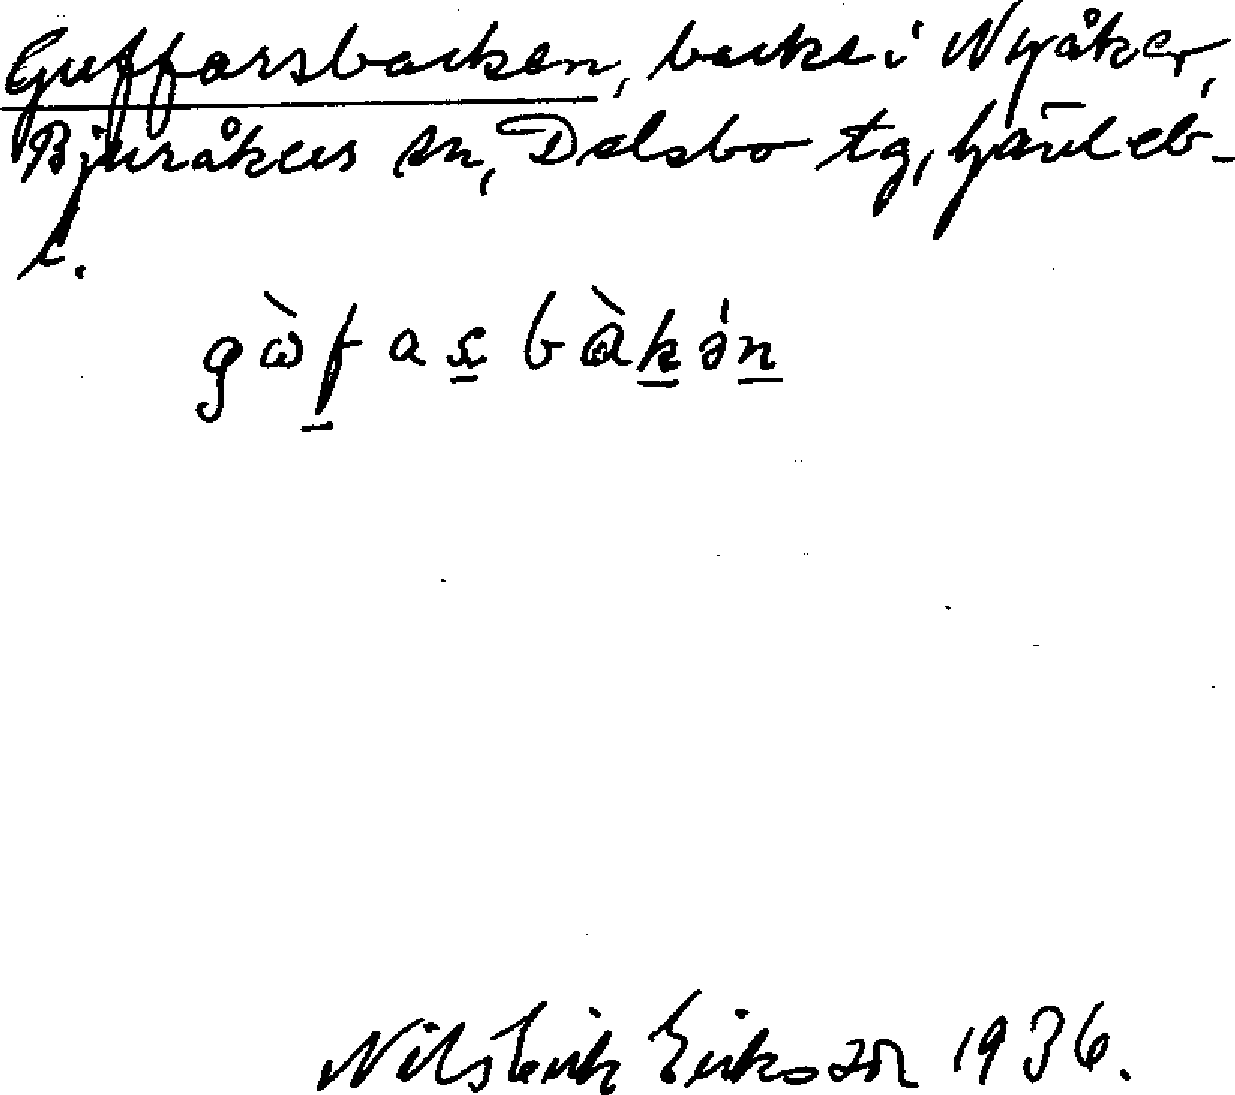 Gufforsbacken, backe i Nyåker,
Bjuråkers sn, Delsbo tg, Gävleb-
l.
gὼfaṣbàkə́n
Nils Erik Eriksson 1936.